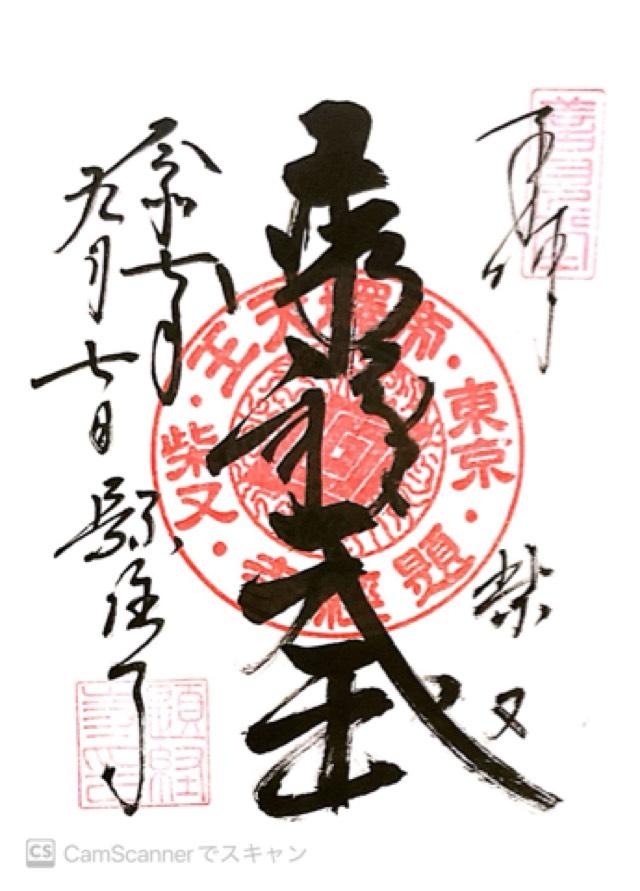 奉拝
柴又
帝釈天王
令和
年
九月七日
題経寺
東京
帝釋天王
柴又
題經寺
題経
寺印
CS CamScannerでスキャン